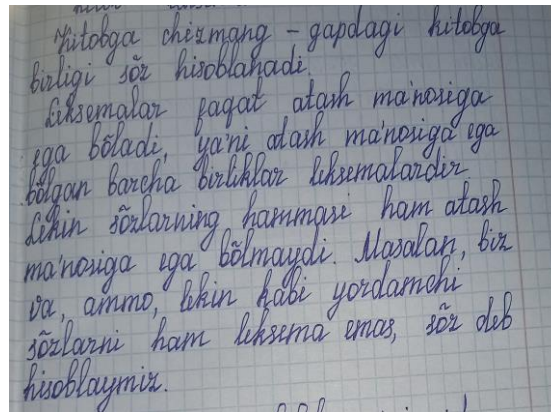 Kitobga chizmang – gapdagi kitobga
birligi sõz hisoblanadi.
Leksemalar faqat atash ma'nosiga
ega bõladi, ya'ni atash ma'nosiga ega
bõlgan barcha birliklar leksemalardir.
Lekin sõzlarning hammasi ham atash
ma'nosiga ega bõlmaydi. Masalan, biz
va, ammo, lekin kabi yordamchi
sõzlarni ham leksema emas, sõz deb
hisoblaymiz.